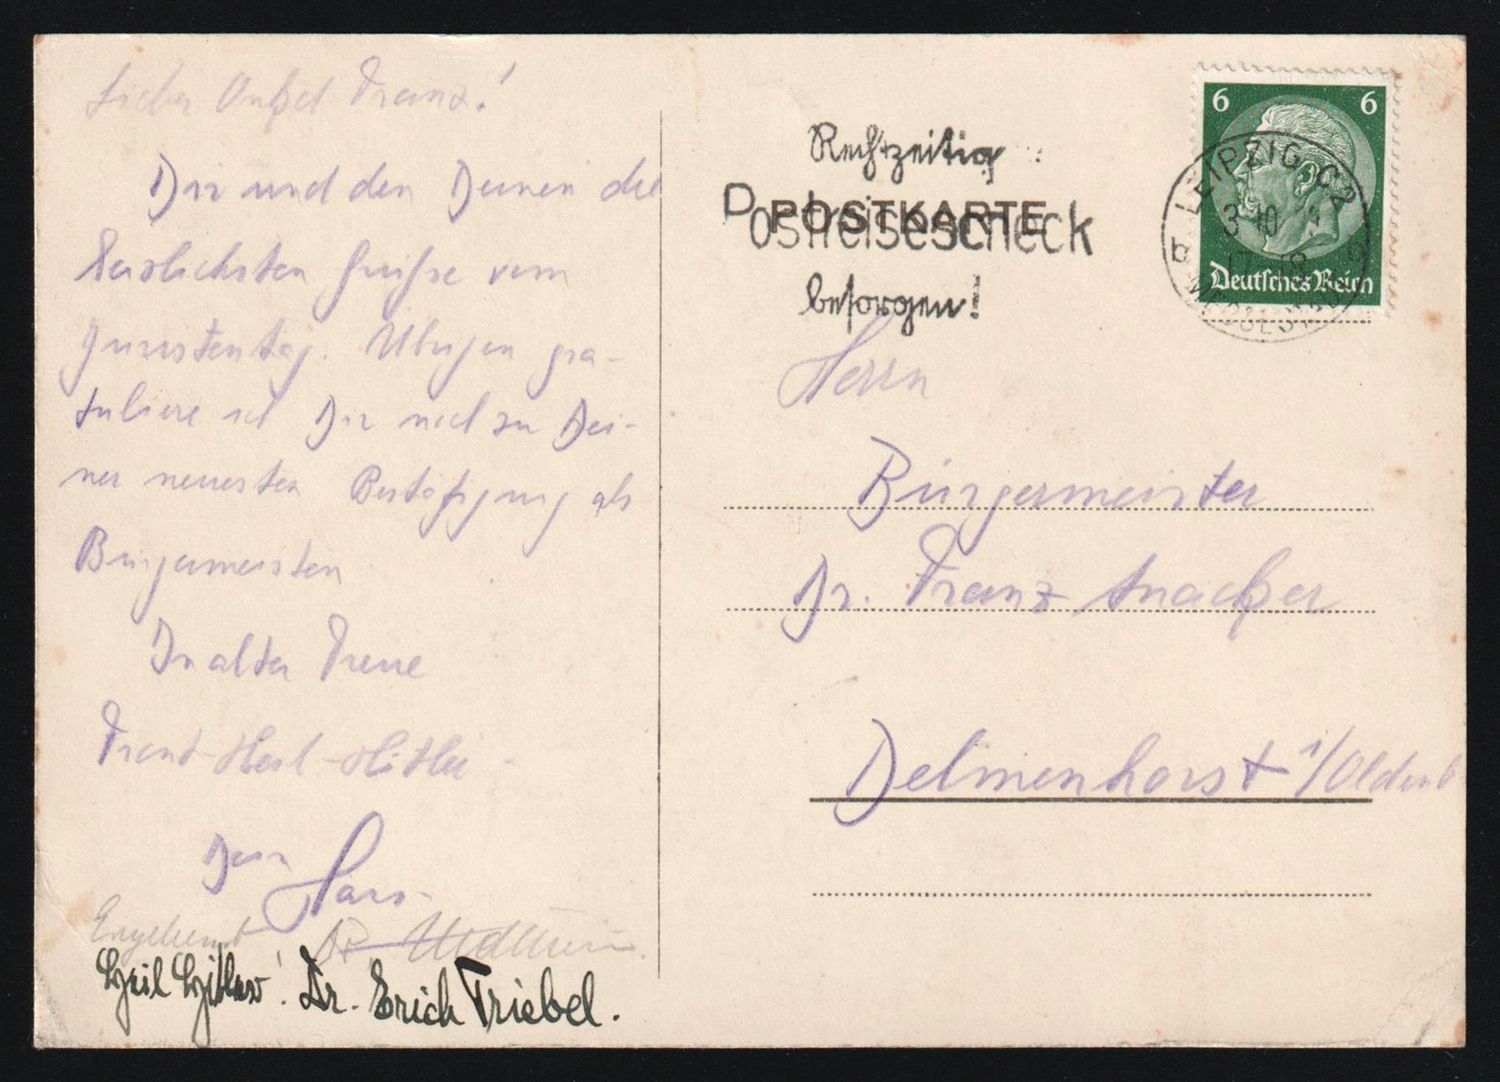 Lieber Onkel Franz!
Dir und den Deinen die
herzlichsten Grüße vom
Juristentag. Übrigen gra-
tuliere ich Dir noch zu Dei-
ner neuesten Bestätigung als
Bürgermeister
In alter Treue
Heil Hitler
Dein
Hans
Dr.
Heil Hitler! Dr. Erich Triebel.
Rechtzeitig
POSTKARTE
Postreisescheck
besorgen!
6 6
LEIPZIG C2
Deutsches Reich
Herrn
Bürgermeister
Dr. Franz
Delmenhorst i/Oldenb